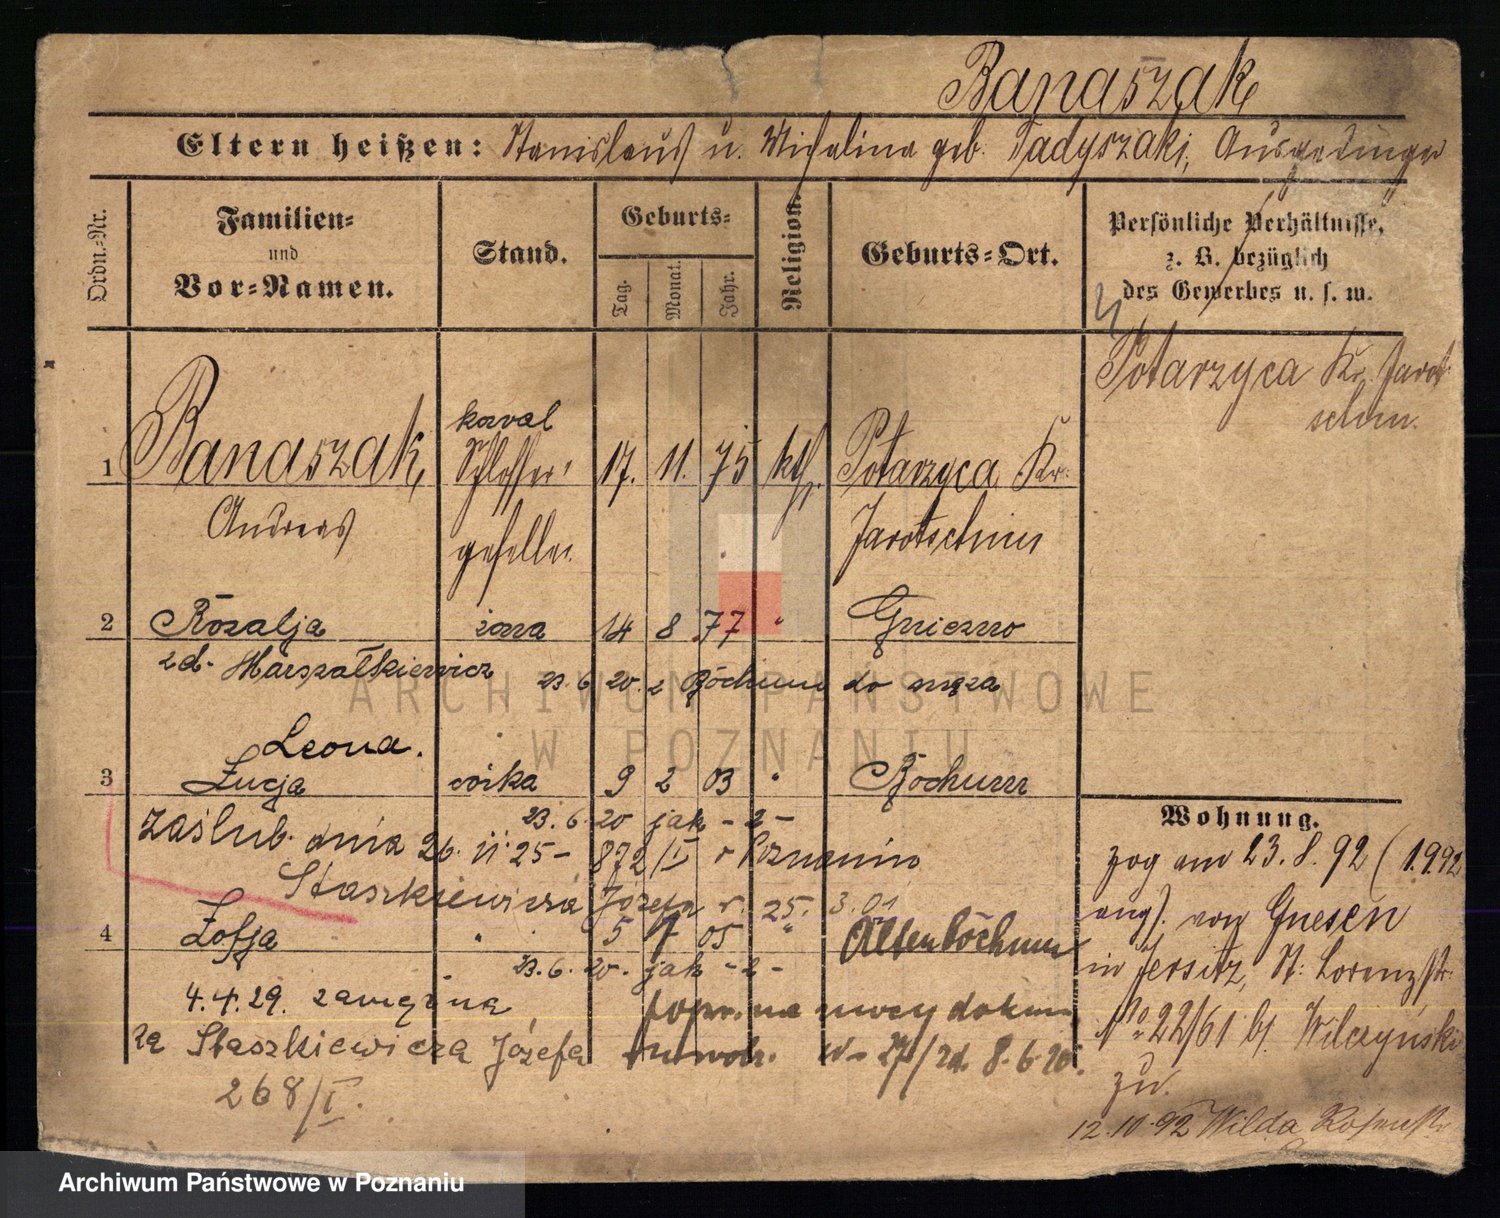 Banaszak
Eltern heißen: Stanislaus u. Michalina geb. Tadyszak, Ausgedinger
Ordn.-Nr.
Familien- und Vor-Namen.
Stand.
Geburts-
Tag.
Monat.
Jahr.
Religion.
Geburts-Ort.
Persönliche Verhältnisse, z. B. bezüglich des Gewerbes u. s. w.
Potarzyca Kr. Jarot-
schin.
kowal
1 Banaszak, Schlosser- 17. 11. 75 kth. Potarzyca Kr.
Andreas geselle. Jarotschin
2 Rozalja żona 14 8 77 " Gniezno
zd. Marszałkiewicz 23. 6 20. z Bochum do męża
Leona.
3 Łucja córka 9 2 03 " Bochum
23. 6. 20 jak - 2 -
zaślub. dnia 26. 11 25 - 872/I w Poznaniu
Staszkiewicza Józefa r. 25. 3. 01
4 Zofja " 5 7 05 " Altenbochum
23. 6. 20. jak - 2 -
4. 4. 29. zamężna popr. na mocy dokum
za Staszkiewicza Józefa 27/zd. 8. 6. 20.
268/I.
Wohnung.
zog am 23. 8. 92 (1.9.92
ang). von Gnesen
in Jersitz, St. Lorenzstr.
No 22/61 b. Wilczyński
zu.
12. 10. 92 Wilda
ARCHIWUM PAŃSTWOWE
W POZNANIU
Archiwum Państwowe w Poznaniu